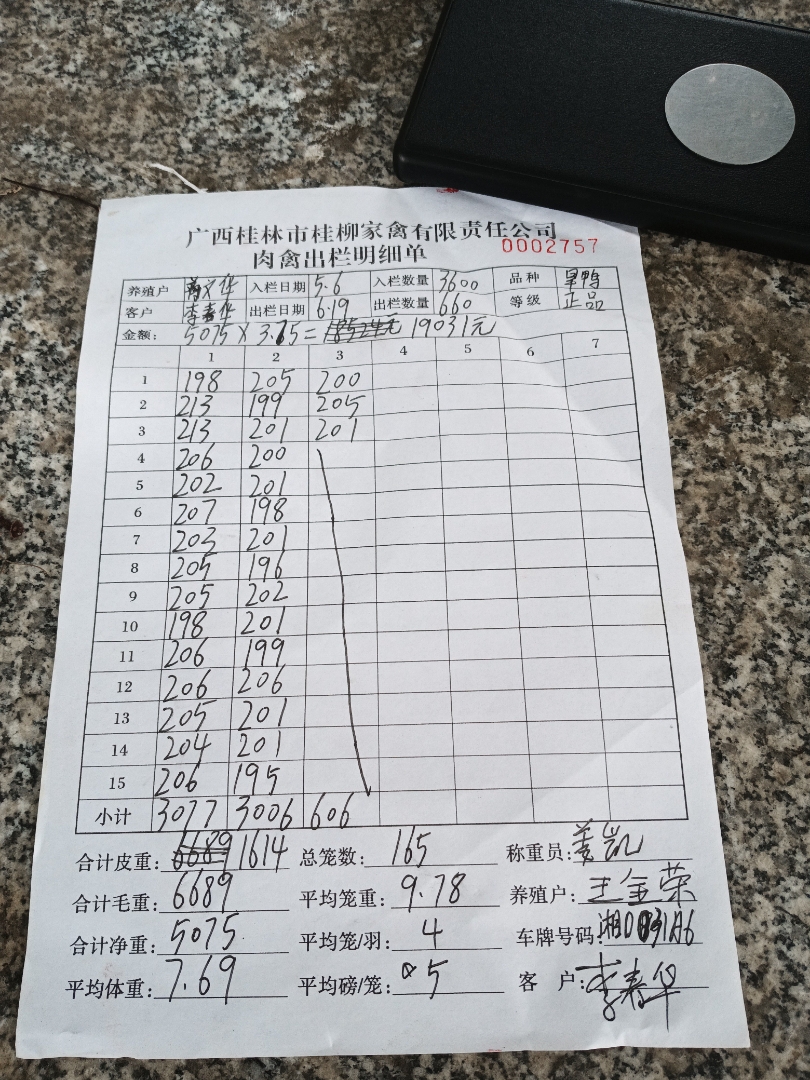 广西桂林市桂柳家禽有限责任公司
肉禽出栏明细单 0002757
养殖户 蒋义华 入栏日期 5.6 入栏数量 3600 品种 旱鸭
客户 李春华 出栏日期 6.19 出栏数量 660 等级 正品
金额: 5075 X 3.75 = 18524元 19031元
1 2 3 4 5 6 7
1 198 205 200
2 213 199 205
3 213 201 201
4 206 200
5 202 201
6 207 198
7 203 201
8 205 196
9 205 202
10 198 201
11 206 199
12 206 206
13 205 201
14 204 201
15 206 195
小计 3077 3006 606
合计皮重: 6689 1614 总笼数: 165 称重员: 姜凯
合计毛重: 6689 平均笼重: 9.78 养殖户: 王金荣
合计净重: 5075 平均笼/羽: 4 车牌号码:
平均体重: 7.69 平均磅/笼: 5 客 户: 李春华